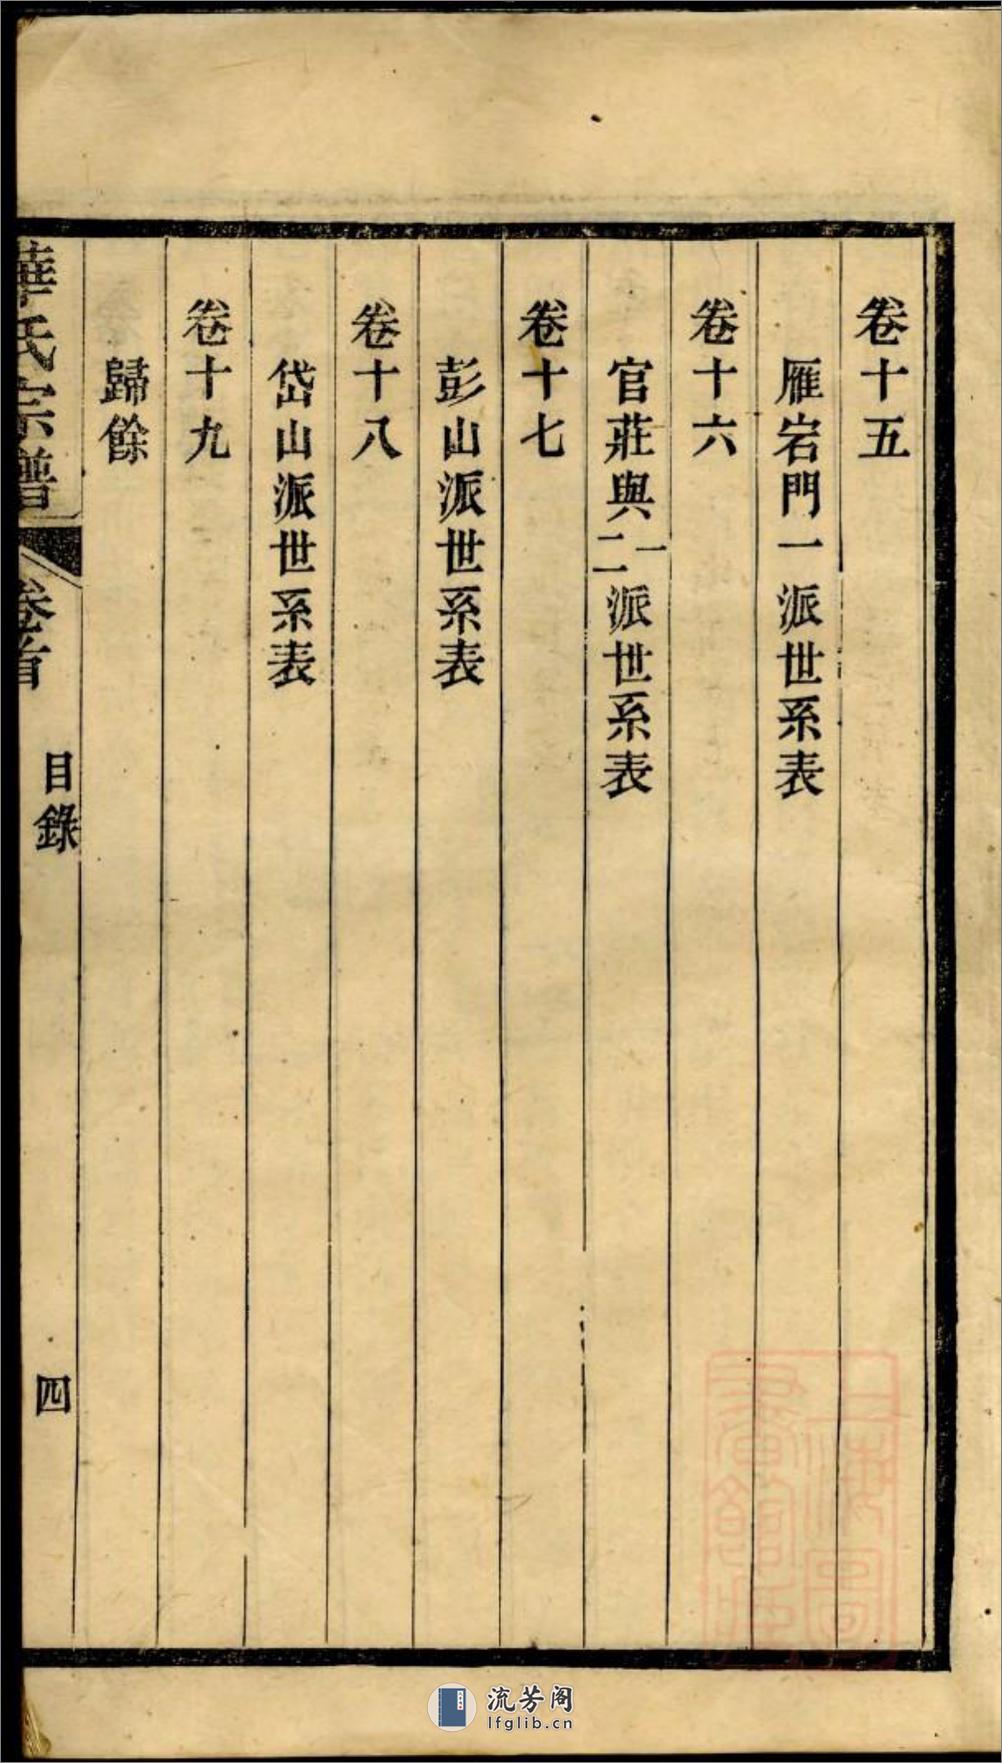 卷十五
雁岩門一派世系表
卷十六
官莊與一二派世系表
卷十七
彭山派世系表
卷十八
岱山派世系表
卷十九
歸餘
氏宗譜
卷首
目錄
四
流芳阁
lfglib.cn